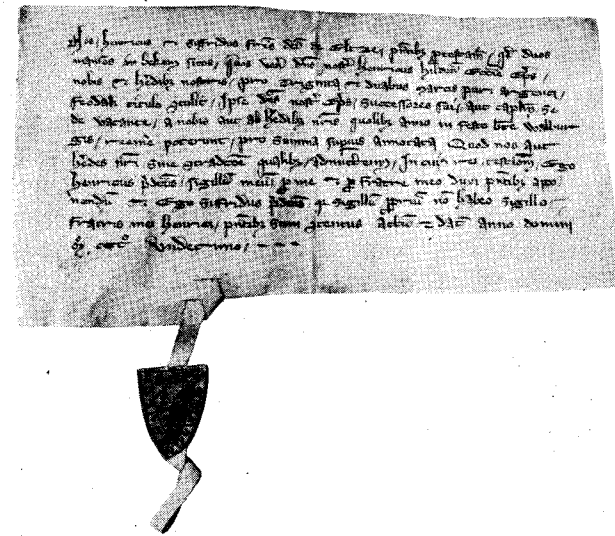 Nos, henricus et sifridus frēs dc̄i de Eltze, pn̄tibȝ protestam̄, qd̄ duos
mansos in sitos, quos vn̄ dn̄s nost̄ henricus hilden̄ Ecc̄ie Ep̄c,
nobis et hēdibȝ nostris, pro triginta et duabus marcis puri argenti,
feodali titulo ꝯcess̄, Ipse dn̄s nost̄ Ep̄c, successores sui, aut capl̄m se-
de vacante, a nobis aut ab hēdibȝ nr̄is quolibȝ anno in festo bt̄e walbur
gis, reemē poterunt, pro summa sup̄ius annotata, Quod nos aut
hēdes nr̄i sine ꝯtradcōne qualibȝ, admittem̄, In cui rei testīom̄, Ego
henricus p̄dc̄us, sigillū meū, ꝓ me et ꝓ fratre meo duxi pn̄tibȝ appo-
nendū, et Ego sifridus p̄dc̄us qr sigillū ꝓpriū nō habeo sigillo
fratris mei henrici, pn̄tibȝ sum ꝯtentus actū et dat̄ anno domini
M̊. ccc̊. Vndecimo,